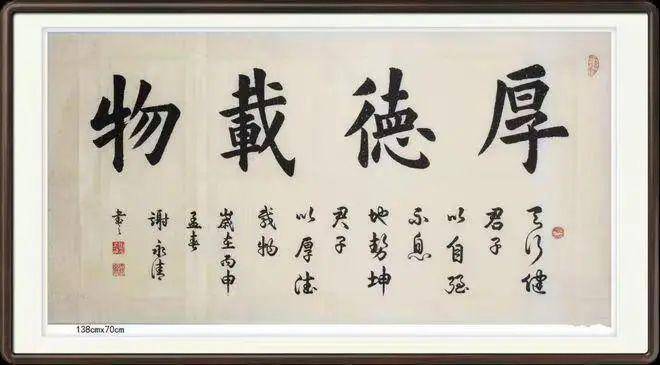 厚德載物
天行健
君子
以自强
不息
地勢坤
君子
以厚德
载物
歲在丙申
孟春
謝永清
書
138cmx70cm